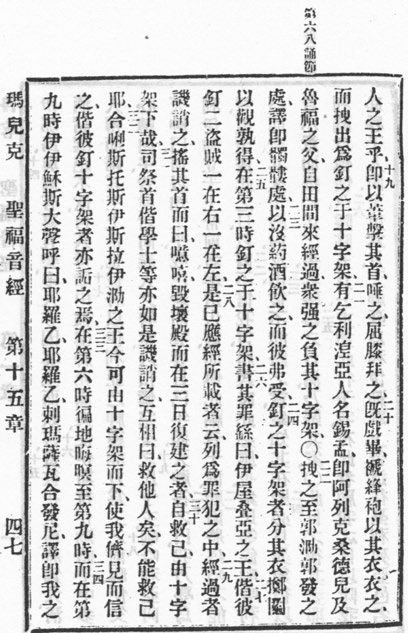 第六八誦節
十九
人之王乎即以葦擊其首唾之屈膝拜之旣戲畢褫絳袍以其衣衣之
二十
而拽出爲釘之于十字架有乞利湼亞人名錫孟即阿列克桑德兒及
二一
魯福之父自田間來經過衆强之負其十字架〇拽之至郭泐郭發之
二二
處譯即髑髏處以沒葯酒飮之而彼弗受釘之十字架者分其衣擲鬮
二三 二四
以觀孰得在第三時釘之于十字架書其罪繇曰伊屋叠亞之王偕彼
二五 二六 二七
釘二盜賊一在右一在左是已應經所載者云列爲罪犯之中經過者
二八 二九
譏誚之搖其首而曰噫嘻毀壞殿而在三日復建之者自救己由十字
三十
架下哉司祭首偕學士等亦如是譏誚之互相曰救他人矣不能救己
三一
耶合唎斯托斯伊斯拉伊泐之王今可由十字架而下使我儕見而信
三二
之偕彼釘十字架者亦詬之焉在第六時徧地晦暝至第九時而在第
三三 三四
九時伊伊穌斯大聲呼曰耶羅乙耶羅乙剌瑪薩瓦合發尼譯即我之
瑪兒克 聖福音經 第十五章 四七